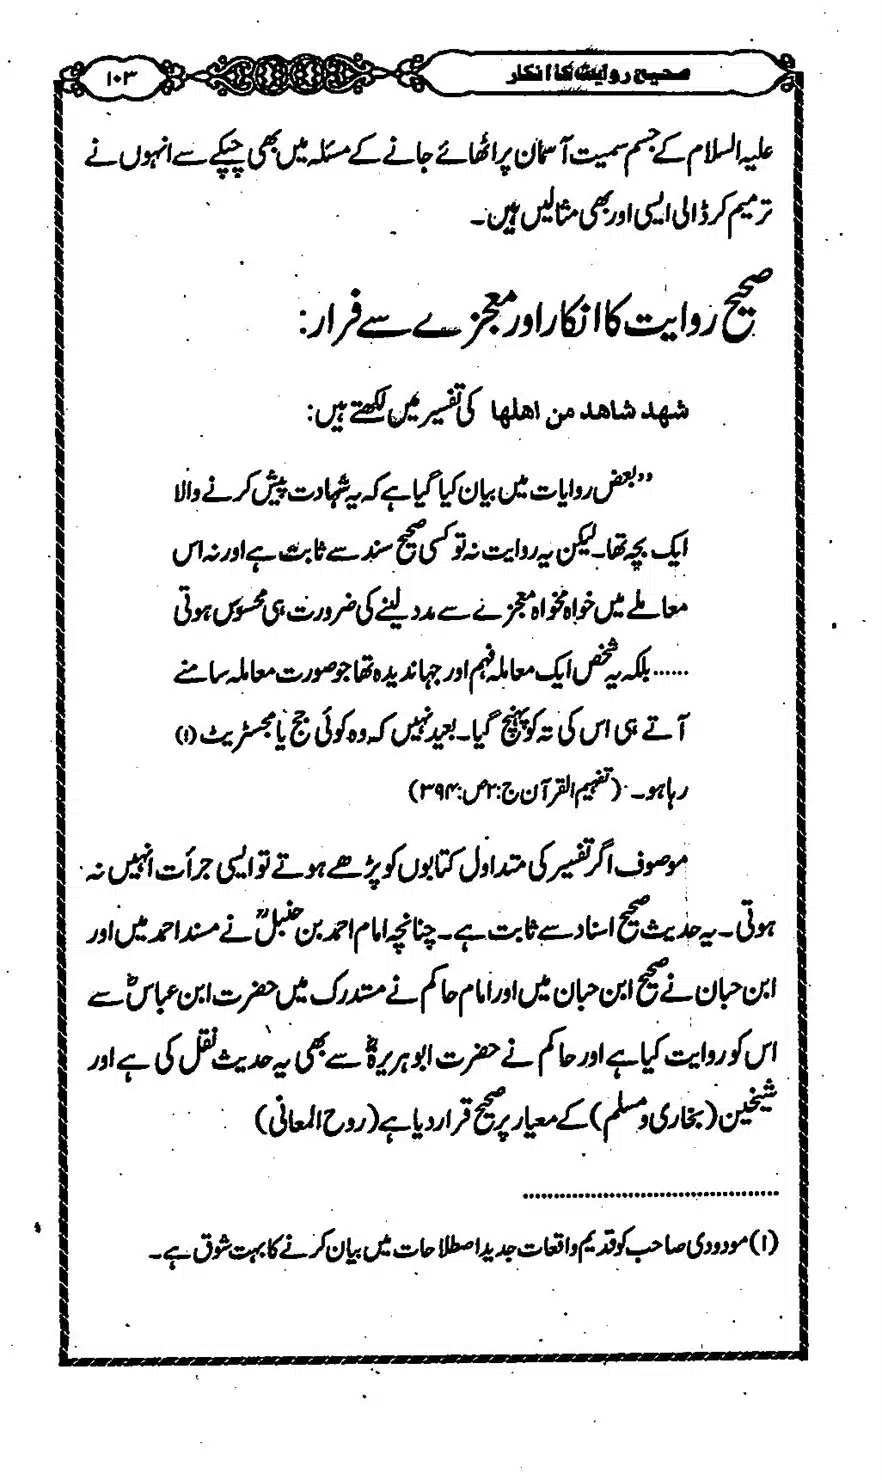 صحیح روایت کا انکار
۱۰۳
علیہ السلام کے جسم سمیت آسمان پر اٹھائے جانے کے مسئلہ میں بھی چپکے سے انہوں نے
ترمیم کر ڈالی ایسی اور بھی مثالیں ہیں۔
صحیح روایت کا انکار اور معجزے سے فرار:
شهد شاهد من اهلها کی تفسیر میں لکھتے ہیں:
”بعض روایات میں بیان کیا گیا ہے کہ یہ شہادت پیش کرنے والا
ایک بچہ تھا۔ لیکن یہ روایت نہ تو کسی صحیح سند سے ثابت ہے اور نہ اس
معاملے میں خواہ مخواہ معجزے سے مدد لینے کی ضرورت ہی محسوس ہوتی
...... بلکہ یہ شخص ایک معاملہ فہم اور جہاندیدہ تھا جو صورت معاملہ سامنے
آتے ہی اس کی تہ کو پہنچ گیا۔ بعید نہیں کہ وہ کوئی جج یا مجسٹریٹ (۱)
رہا ہو۔ (تفہیم القرآن ج:۲ص:۳۹۴)
موصوف اگر تفسیر کی متداول کتابوں کو پڑھے ہوتے تو ایسی جرأت انہیں نہ
ہوتی۔ یہ حدیث صحیح اسناد سے ثابت ہے۔ چنانچہ امام احمد بن حنبلؒ نے مسند احمد میں اور
ابن حبان نے صحیح ابن حبان میں اور امام حاکم نے مستدرک میں حضرت ابن عباسؓ سے
اس کو روایت کیا ہے اور حاکم نے حضرت ابوہریرہؓ سے بھی یہ حدیث نقل کی ہے اور
شیخین (بخاری و مسلم) کے معیار پر صحیح قرار دیا ہے (روح المعانی)
(۱) مودودی صاحب کو قدیم واقعات جدید اصطلاحات میں بیان کرنے کا بہت شوق ہے۔